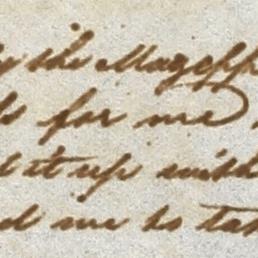 the Mazepp
for me
it up with
me to ta